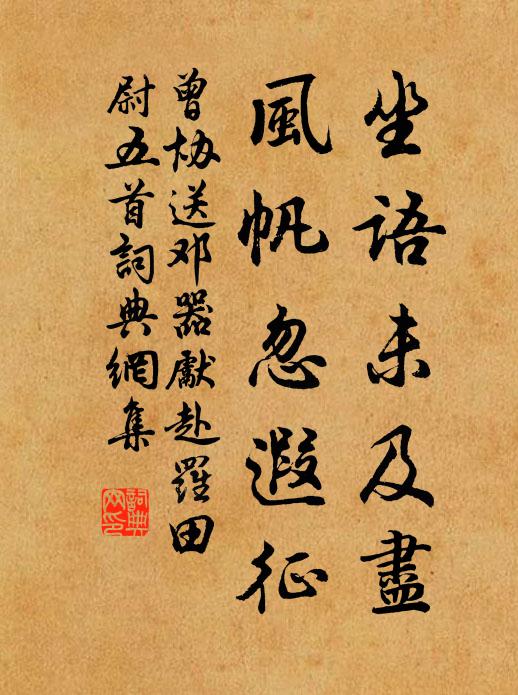 坐語未及盡
風帆忽遐征
曾協送邓器獻赴羅田
尉五首詞典網集
詞典网印